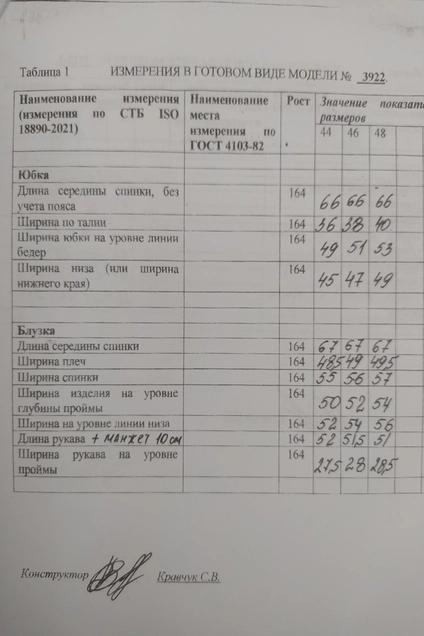 Таблица 1 ИЗМЕРЕНИЯ В ГОТОВОМ ВИДЕ МОДЕЛИ № 3922.
Наименование измерения Наименование Рост Значение показат
(измерения по СТБ ISO места размеров
18890-2021) измерения по 44 46 48
ГОСТ 4103-82
Юбка
Длина середины спинки, без 164 66 66 66
учета пояса
Ширина по талии 164 36 38 40
Ширина юбки на уровне линии 164 49 51 53
бедер
Ширина низа (или ширина 164 45 47 49
нижнего края)
Блузка
Длина середины спинки 164 67 67 67
Ширина плеч 164 48,5 49 49,5
Ширина спинки 164 55 56 57
Ширина изделия на уровне 164 50 52 54
глубины проймы
Ширина на уровне линии низа 164 52 54 56
Длина рукава + манжет 10 см 164 52 51,5 51
Ширина рукава на уровне 164 27,5 28 28,5
проймы
Конструктор Кравчук С.В.